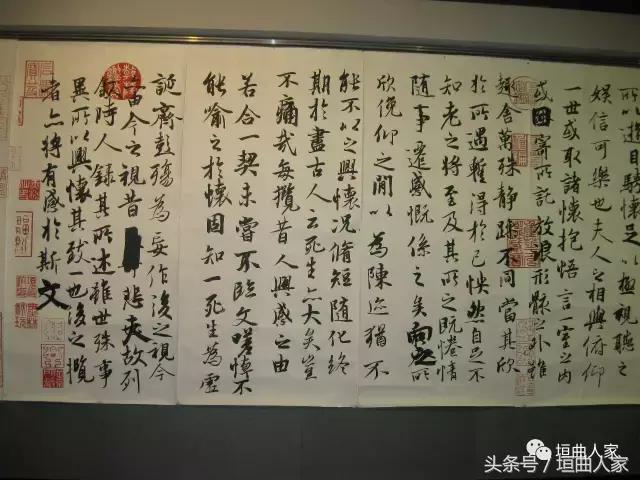 所以遊目騁懷足以極視聽之
娛信可樂也夫人之相與俯仰
一世或取諸懷抱悟言一室之内
或因寄所託放浪形骸之外雖
趣舍萬殊静躁不同當其欣
於所遇暫得於己怏然自足不
知老之將至及其所之既惓情
隨事遷感慨係之矣向之所
欣俛仰之間以為陳迹猶不
能不以之興懷況脩短隨化終
期於盡古人云死生亦大矣豈
不痛哉每攬昔人興感之由
若合一契未嘗不臨文嗟悼不
能喻之於懷固知一死生為虛
誕齊彭殤為妄作後之視今
亦由今之視昔悲夫故列
叙時人録其所述雖世殊事
異所以興懷其致一也後之攬
者亦將有感於斯文
垣曲人家
头条号/垣曲人家